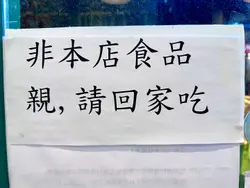 非本店食品
親,請回家吃